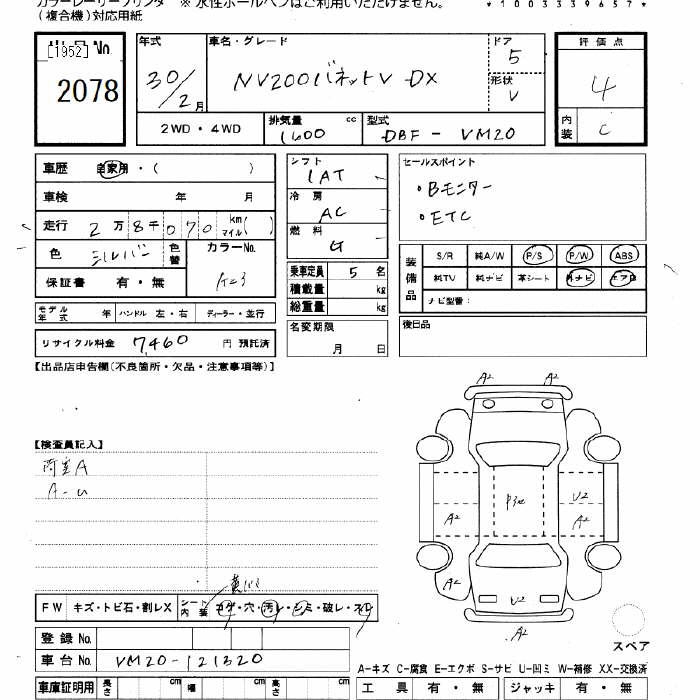 (複合機)対応用紙
※ 水性ボールペンはご利用いただけません。
*1003339657*
[1952] No
2078
年式 30/2月
車名・グレード NV200バネットV DX
ドア 5
形状 V
評価点 4
内装 C
2WD・4WD
排気量 1600 cc
型式 DBF-VM20
車歴 自家用・( )
車検 年 月
走行 2万8千070 km マイル( )
色 シルバー 色替 カラーNo. K23
保証書 有・無
シフト 1AT
冷房 AC
燃料 G
乗車定員 5名
積載量 kg
総重量 kg
セールスポイント
・Bモニター
・ETC
装備品 S/R 純A/W P/S P/W ABS
純TV 純ナビ 革シート 外ナビ エアB
ナビ型番:
モデル年式 年 ハンドル 左・右 ディーラー・並行
名変期限 月 日
後日品
リサイクル料金 7,460 円 預託済
【出品店申告欄(不良箇所・欠品・注意事項等)】
A2 A2
【検査員記入】
荷室A
A-U
A2 U2 A2
A2 U2
A2
FW キズ・トビ石・割レX シート内装 コゲ・穴・汚レ・シミ・破レ・スレ
登録No.
車台No. VM20-121320
スペア
A-キズ C-腐食 E-エクボ S-サビ U-凹ミ W-補修 XX-交換済
車庫証明用 長さ cm 幅 cm 高さ cm
工具 有・無 ジャッキ 有・無